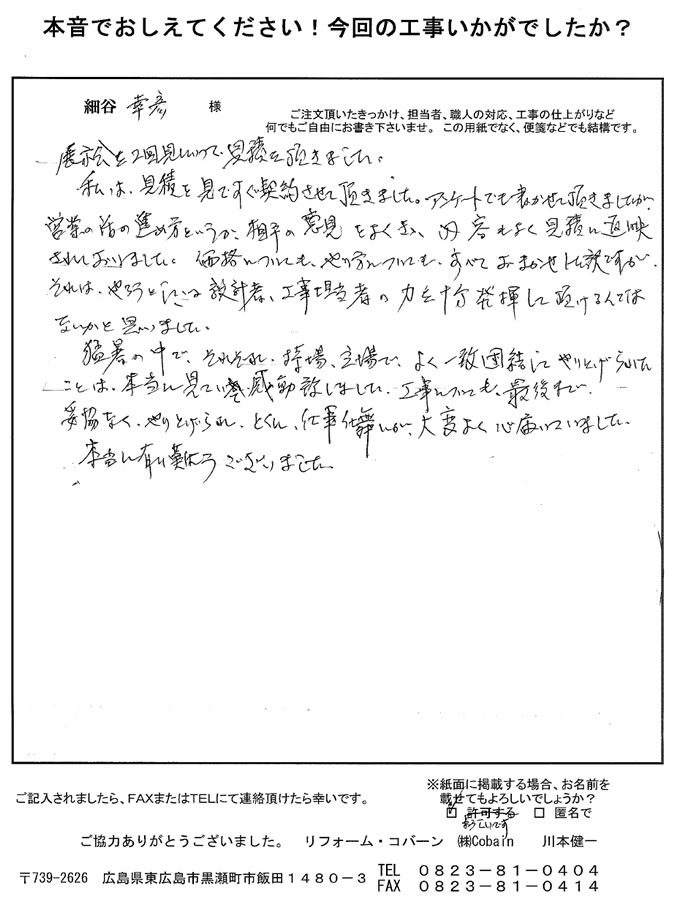 本音でおしえてください！今回の工事いかがでしたか？
細谷 幸彦 様
ご注文頂いたきっかけ、担当者、職人の対応、工事の仕上がりなど
何でもご自由にお書き下さいませ。この用紙でなく、便箋などでも結構です。
展示会を2回見にいって、見積を頂きました。
私は、見積を見てすぐ契約させて頂きました。アンケートでも書かせて頂きましたが、
営業の話の進め方というか、相手の意見をよくきき、内容もよく見積に反映
されておりました。価格についても、やり方についても、すべておまかせした訳ですが、
それは、やろうとしている設計者、工事担当者の力を十分発揮して頂けるんでは
ないかと思いました。
猛暑の中で、それぞれ、持場、立場で、よく一致団結して やりとげられた
ことは、本当に見ていて 感動致しました。工事についても、最後まで、
妥協なく、やりとげられ、とくに、仕事仕舞いが、大変よく 心届いていました。
本当に有り難う ございました。
ご記入されましたら、FAXまたはTELにて連絡頂けたら幸いです。
※紙面に掲載する場合、お名前を
載せてもよろしいでしょうか？
☑ 許可する □ 匿名で
ご協力ありがとうございました。 リフォーム・コバーン ㈱Cobain 川本健一
〒739-2626 広島県東広島市黒瀬町市飯田１４８０－３
TEL ０８２３－８１－０４０４
FAX ０８２３－８１－０４１４